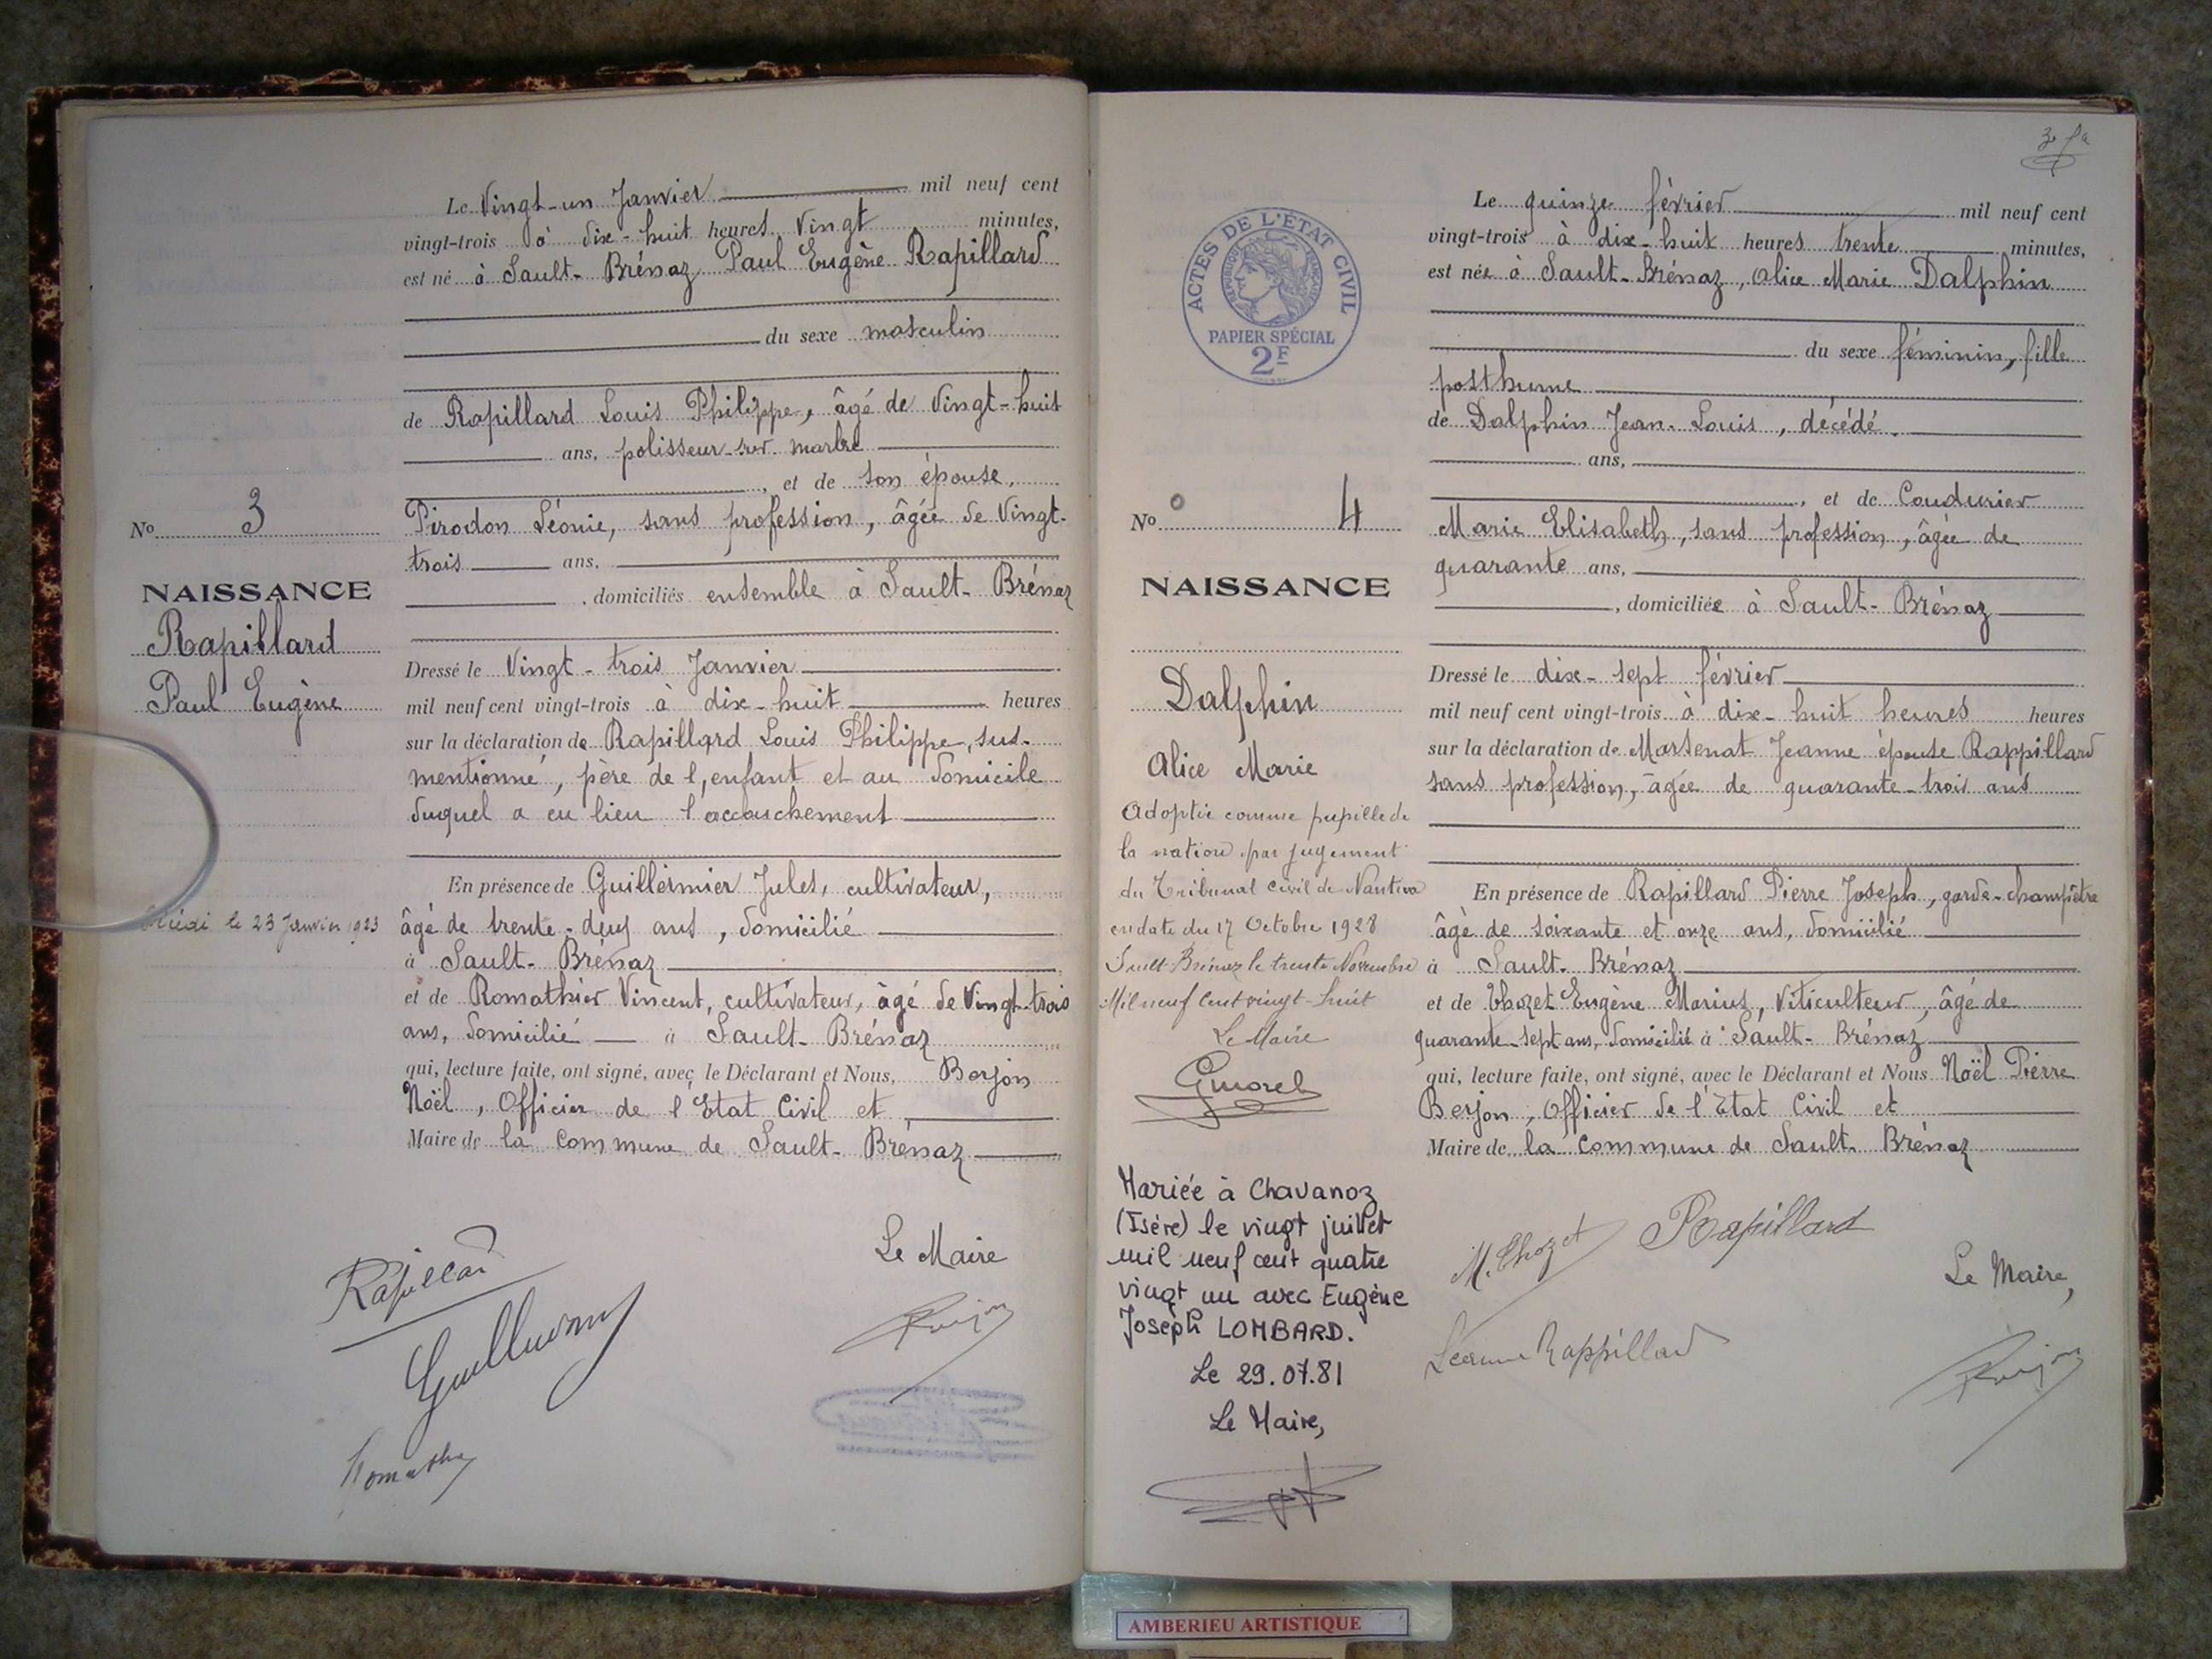 Le Vingt-un Janvier mil neuf cent
vingt-trois à dix-huit heures Vingt minutes,
est né à Sault-Brénaz Paul Eugène Rapillard
du sexe masculin
de Rapillard Louis Philippe, âgé de Vingt-huit
ans, polisseur-sur-marbre
, et de son épouse,
Pirodon Léonie, sans profession, âgée de Vingt-
trois ans,
, domiciliés ensemble à Sault-Brénaz
Dressé le Vingt-trois Janvier
mil neuf cent vingt-trois à dix-huit heures
sur la déclaration de Rapillard Louis Philippe, sus-
mentionné, père de l,enfant et au domicile
duquel a eu lieu l'accouchement
En présence de Guillermier Jules, cultivateur,
âgé de trente-deux ans, domicilié
à Sault-Brénaz
et de Romathier Vincent, cultivateur, âgé de Vingt-trois
ans, domicilié à Sault-Brénaz
qui, lecture faite, ont signé, avec le Déclarant et Nous, Berjon
Noël, Officier de l'Etat Civil et
Maire de la Commune de Sault-Brénaz
No 3
NAISSANCE
Rapillard
Paul Eugène
le 23 Janvier 1923
Rapillard
Le Maire
ACTES DE L'ÉTAT CIVIL
RÉPUBLIQUE FRANÇAISE
PAPIER SPÉCIAL
2F
No 4
NAISSANCE
Dalphin
Alice Marie
Adoptée comme pupille de
la nation par jugement
du Tribunal Civil de Nantua
en date du 17 Octobre 1928
Sault-Brénaz le trente Novembre
Mil neuf Cent vingt-huit
Le Maire
Mariée à Chavanoz
(Isère) le vingt juillet
mil neuf cent quatre
vingt un avec Eugène
Joseph LOMBARD.
Le 29.07.81
Le Maire,
Le quinze février mil neuf cent
vingt-trois à dix-huit heures trente minutes,
est née à Sault-Brénaz, Alice Marie Dalphin
du sexe féminin, fille
posthume
de Dalphin Jean-Louis, décédé.
ans,
, et de Coudurier
Marie Elisabeth, sans profession, âgée de
quarante ans,
, domiciliée à Sault-Brénaz
Dressé le dix-sept février
mil neuf cent vingt-trois à dix-huit heures heures
sur la déclaration de Martenat Jeanne épouse Rappillard
sans profession, âgée de quarante-trois ans
En présence de Rapillard Pierre Joseph, garde-champêtre
âgé de soixante et onze ans, domicilié
à Sault-Brénaz
et de Chozet Eugène Marius, Viticulteur, âgé de
quarante-sept ans, domicilié à Sault-Brénaz
qui, lecture faite, ont signé, avec le Déclarant et Nous Noël Pierre
Berjon, Officier de l'Etat Civil et
Maire de la Commune de Sault-Brénaz
M. Chozet Rapillard
Le Maire,
Jeanne Rappillard
AMBERIEU ARTISTIQUE